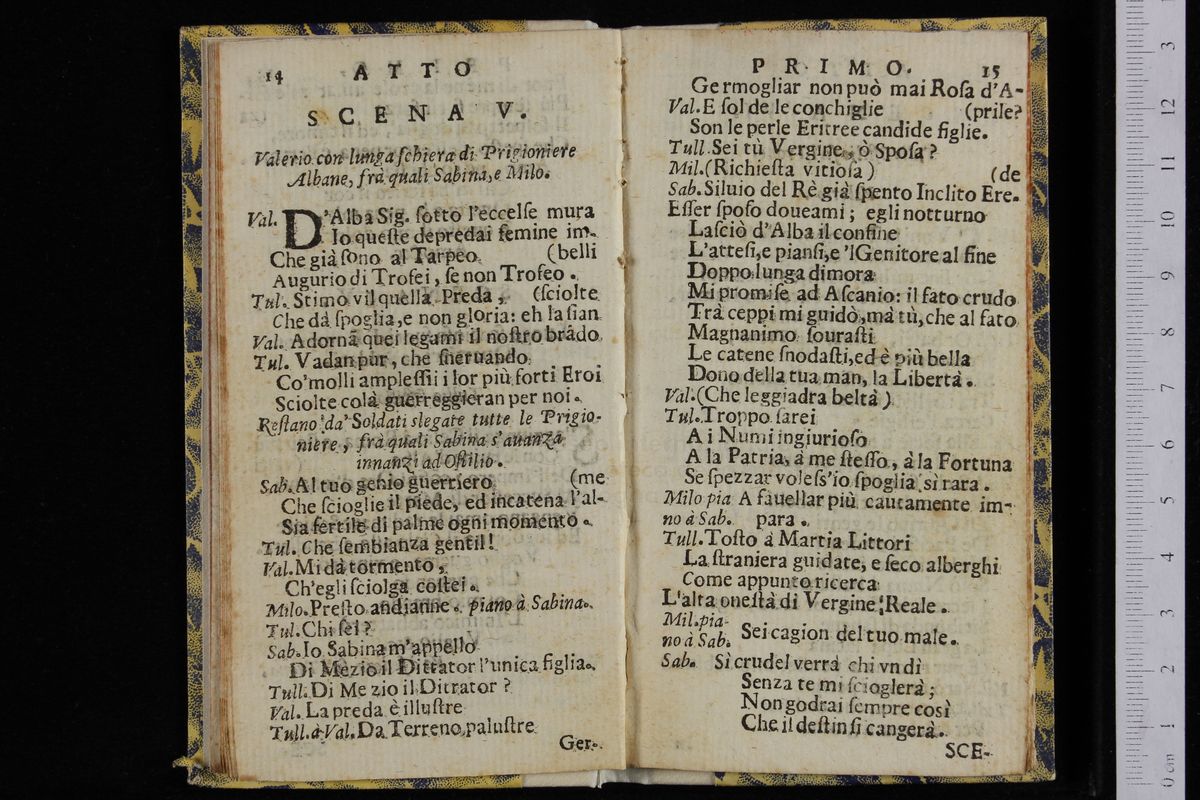 14 ATTO
SCENA V.
Valerio con lunga ſchiera di Prigioniere
Albane, frà quali Sabina, e Milo.
Val. D'Alba Sig. ſotto l'eccelſe mura
Io queſte depredai femine im-
Che già ſono al Tarpeo (belli
Augurio di Trofei, ſe non Trofeo.
Tul. Stimo vil quella Preda, (ſciolte
Che dà ſpoglia, e non gloria: eh la ſian
Val. Adornā quei legami il noſtro brādo
Tul. Vadan pur, che ſneruando
Co'molli ampleſſii i lor più forti Eroi
Sciolte colà guerreggieran per noi.
Reſtano da' Soldati slegate tutte le Prigio-
niere, frà quali Sabina s'auanza
innanzi ad Oſtilio.
Sab. Al tuo genio guerriero (me
Che ſcioglie il piede, ed incatena l'al-
Sia fertile di palme ogni momento.
Tul. Che ſembianza gentil!
Val. Mi dà tormento,
Ch'egli ſciolga coſtei.
Milo. Preſto andianne. piano à Sabina.
Tul. Chi ſei?
Sab. Io Sabina m'appello
Di Mezio il Dittator l'unica figlia.
Tull. Di Mezio il Dittator?
Val. La preda è illuſtre
Tull. à Val. Da Terreno paluſtre
Ger-
PRIMO. 15
Germogliar non può mai Roſa d'A-
Val. E ſol de le conchiglie (prile?
Son le perle Eritree candide figlie.
Tull. Sei tù Vergine, ò Spoſa?
Mil. (Richieſta vitioſa) (de
Sab. Siluio del Rè già ſpento Inclito Ere-
Eſſer ſpoſo doueami; egli notturno
Laſciò d'Alba il confine
L'atteſi, e pianſi, e 'l Genitore al fine
Doppo lunga dimora
Mi promiſe ad Aſcanio: il fato crudo
Trà ceppi mi guidò, mà tù, che al fato
Magnanimo ſouraſti
Le catene ſnodaſti, ed è più bella
Dono della tua man, la Libertà.
Val. (Che leggiadra beltà)
Tul. Troppo ſarei
A i Numi ingiurioſo
A la Patria, à me ſteſſo, à la Fortuna
Se ſpezzar voleſs'io ſpoglia sì rara.
Milo pia A fauellar più cautamente im-
no à Sab. para.
Tull. Toſto à Martia Littori
La ſtraniera guidate, e ſeco alberghi
Come appunto ricerca
L'alta oneſtà di Vergine Reale.
Mil. pia-
no à Sab. Sei cagion del tuo male.
Sab. Sì crudel verrà chi vn dì
Senza te mi ſcioglerà;
Non godrai ſempre così
Che il deſtin ſi cangerà.
SCE-
0 cm 1 2 3 4 5 6 7 8 9 10 11 12 3